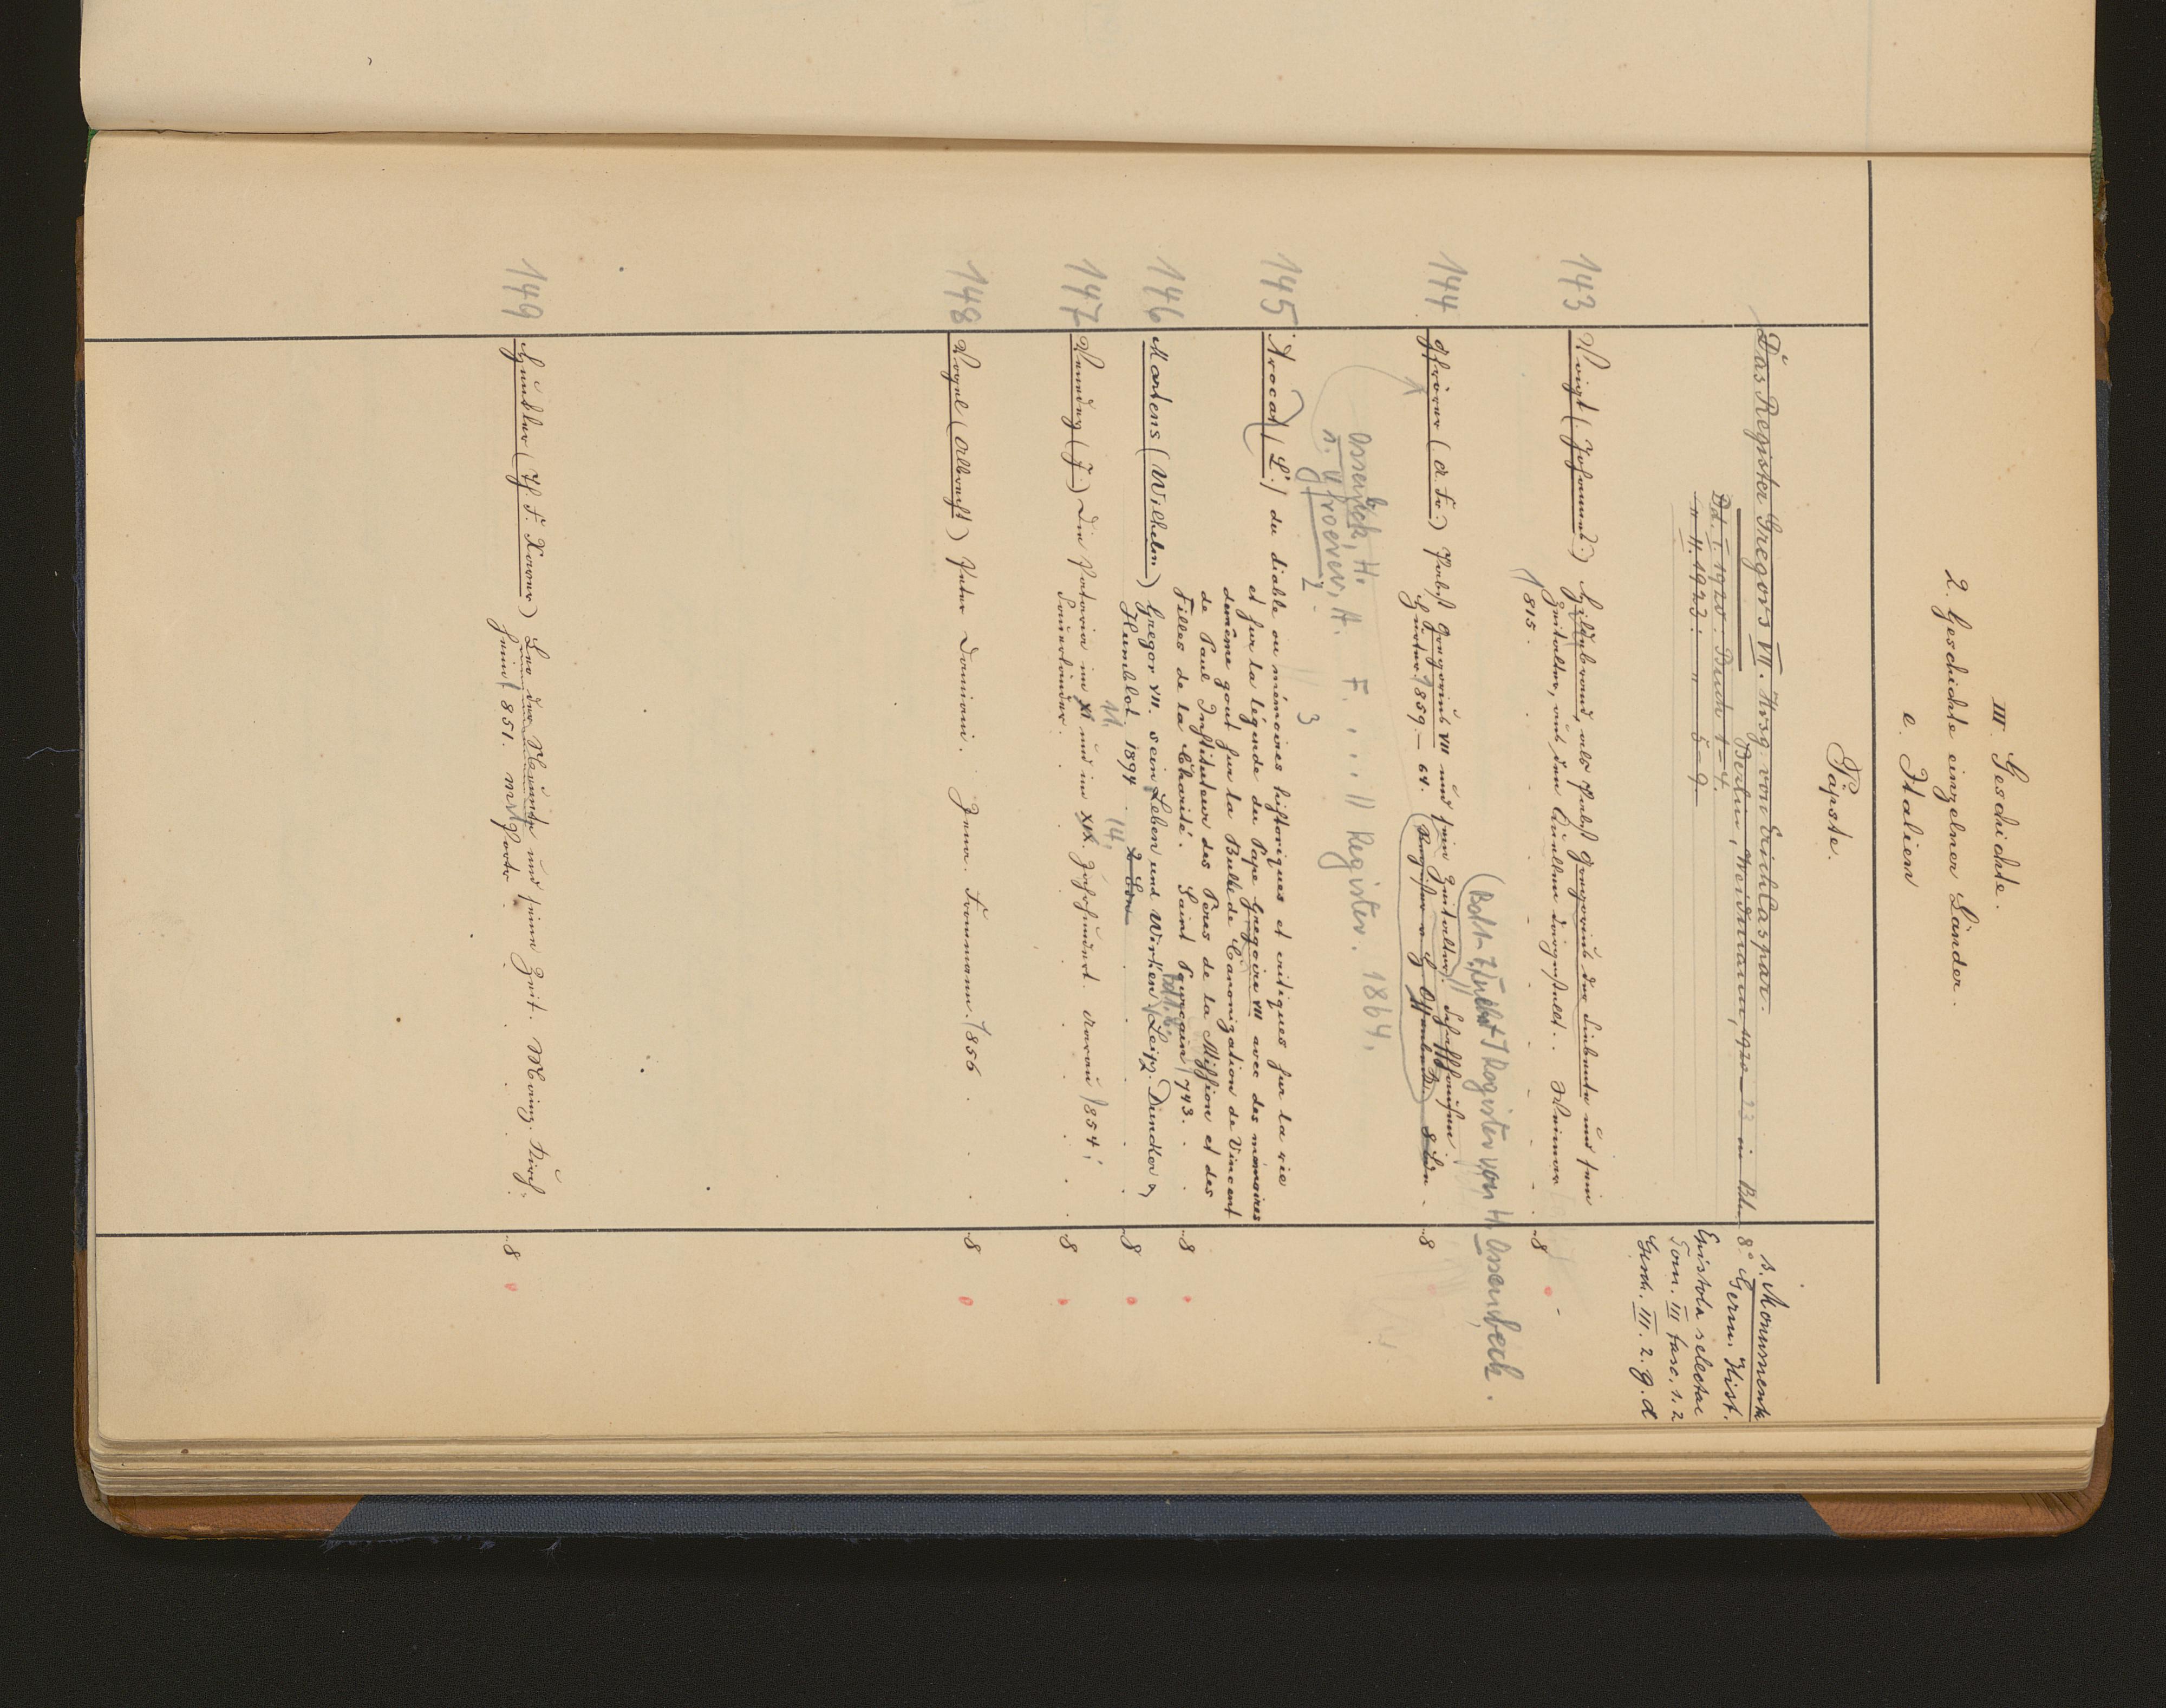 III. Geschichte.
2. Geschichte einzelner Länder.
e. Italien
Päpste.
Das Register Gregors VII. Hrsg. von Erich Caspar.
Berlin, Weidmann, 1920–23 in Bden 8°
Bd. I. 1920. Buch 1–4.
" II. 1923. " 5–9.
s. Monumenta
Germ. Hist.
Epistolae selectae
Tom. III fasc. 1. 2
Gesch. III. 2. g. d
143 Voigt (Johannes) Hildebrand, als Pabst Gregorius der Siebente und sein
Zeitalter, aus den Quellen dargestellt. Weimar
1815. 8
(Bdt-7, nebst Register von H. Ossenbeck.
144 Gfrörer (A. Fr.) Pabst Gregorius VII und sein Zeitalter. Schaffhausen
Hurter 1859–64. Register v. Ossenbeck. 8 Bde 8
Ossenbeck, H.
n. Gfroerer, A. F. . . . // Register. 1864.
2 3
145 Avocat (L') du diable ou mémoires historiques et critiques sur la vie
et sur la légende du Pape Gregoire VII avec des mémoires
de même gout sur la Bulle de Canonization de Vincent
de Paul Instituteur des Peres de la Mission et des
Filles de la Charité. Saint Pourçain 1743. 8
146 Martens (Wilhelm) Gregor VII. sein Leben und Wirken. Leipz. Duncker &
Humblot 1894. 2 Bde 8
147 Venedey (J.) Die Pataria im XI und im XIX. Jahrhundert. Aarau 1854;
11. 19.
Sauerländer. 8
148 Vogel (Albrecht) Peter Damiani. Jena. Frommann. 1856 8
149 Hunkler (Th. F. Xaver) Leo der Neunte und seine Zeit. Mainz. Kirch-
heim 1851. 8